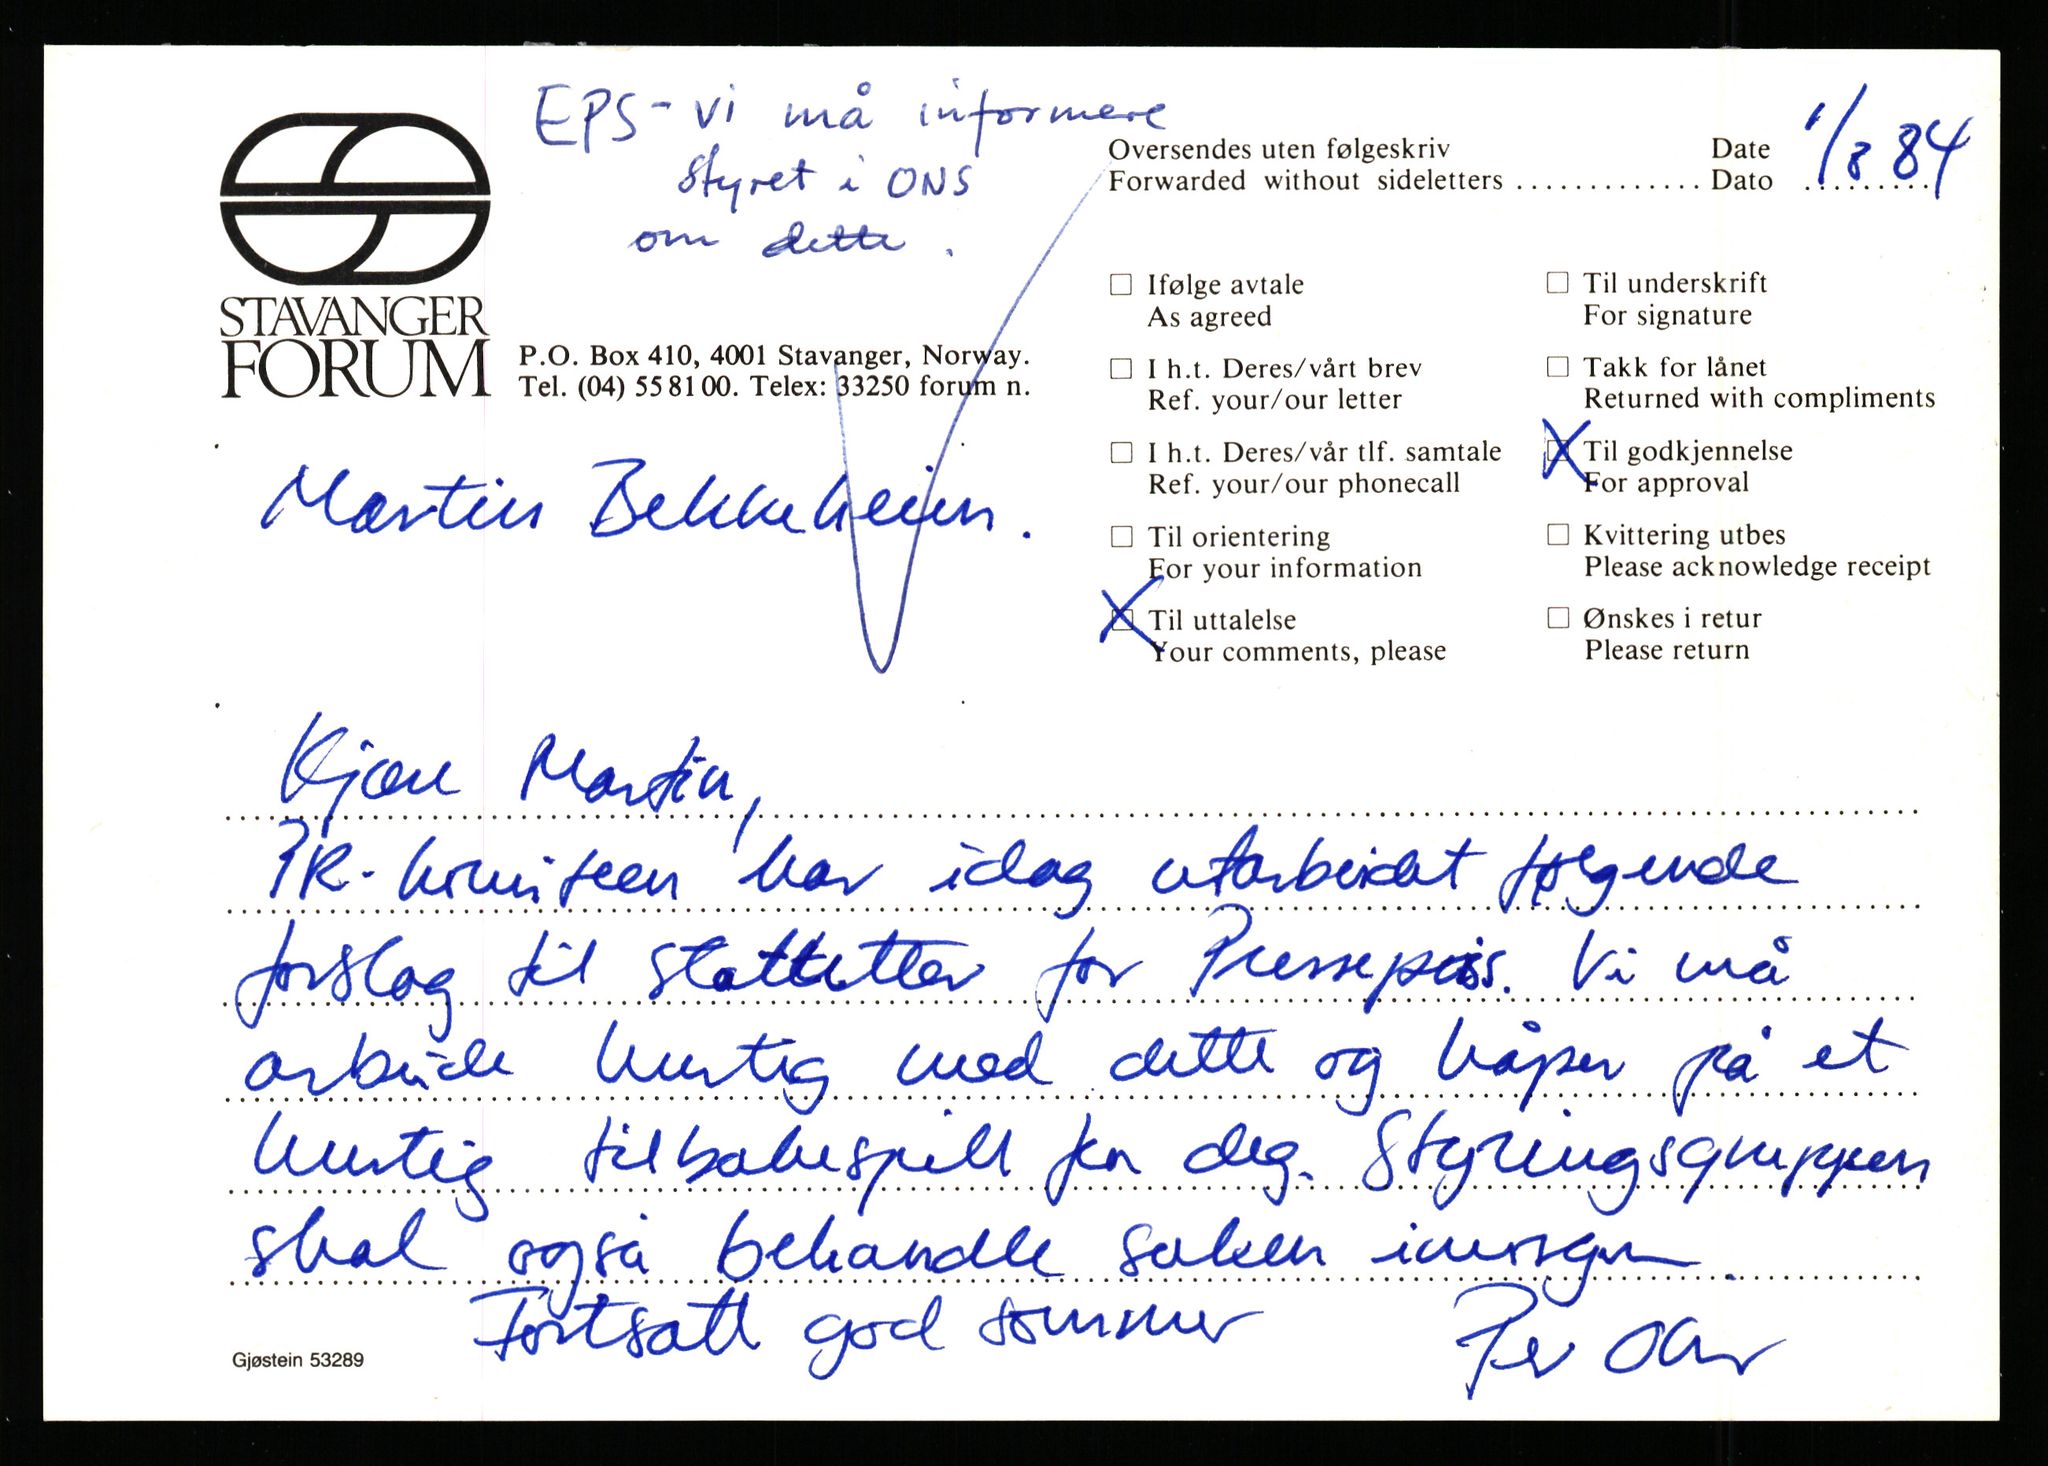 EPS - vi må informere
styret i ONS
om dette.
STAVANGER
FORUM
P.O. Box 410, 4001 Stavanger, Norway.
Tel. (04) 55 81 00. Telex: 33250 forum n.
Oversendes uten følgeskriv Date
Forwarded without sideletters ............. Dato 1/8 84
Ifølge avtale
As agreed
I h.t. Deres/vårt brev
Ref. your/our letter
I h.t. Deres/vår tlf. samtale
Ref. your/our phonecall
Til orientering
For your information
X Til uttalelse
Your comments, please
Til underskrift
For signature
Takk for lånet
Returned with compliments
X Til godkjennelse
For approval
Kvittering utbes
Please acknowledge receipt
Ønskes i retur
Please return
Martin Bekkeheien.
Kjære Martin,
PR-komiteen har idag utarbeidet følgende
forslag til støtteetter for Pressepris. Vi må
arbeide hurtig med dette og håper på et
hurtig tilbakespill fra deg. Styringsgruppen
skal også behandle saken imorgen.
Fortsatt god sommer
Per
Gjøstein 53289